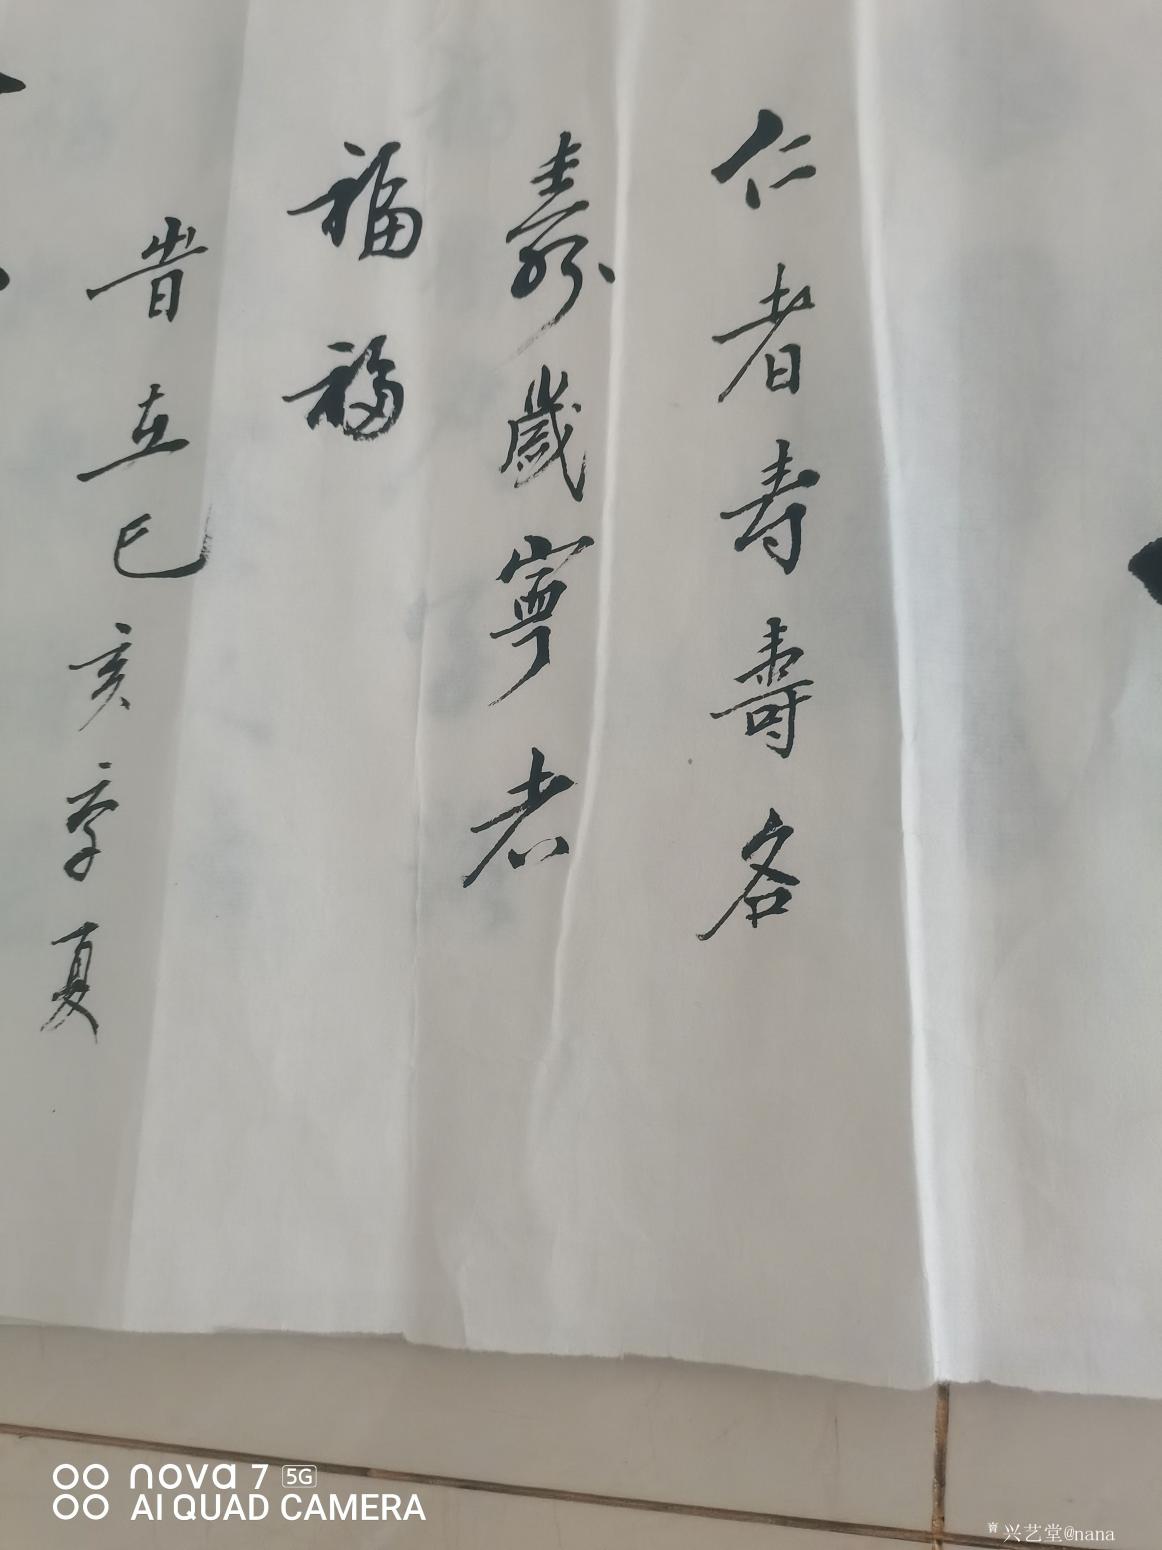 仁者寿壽各
歲寧者
福福
昔立已亥季夏
nova 7 5G
AI QUAD CAMERA
兴艺堂@nana